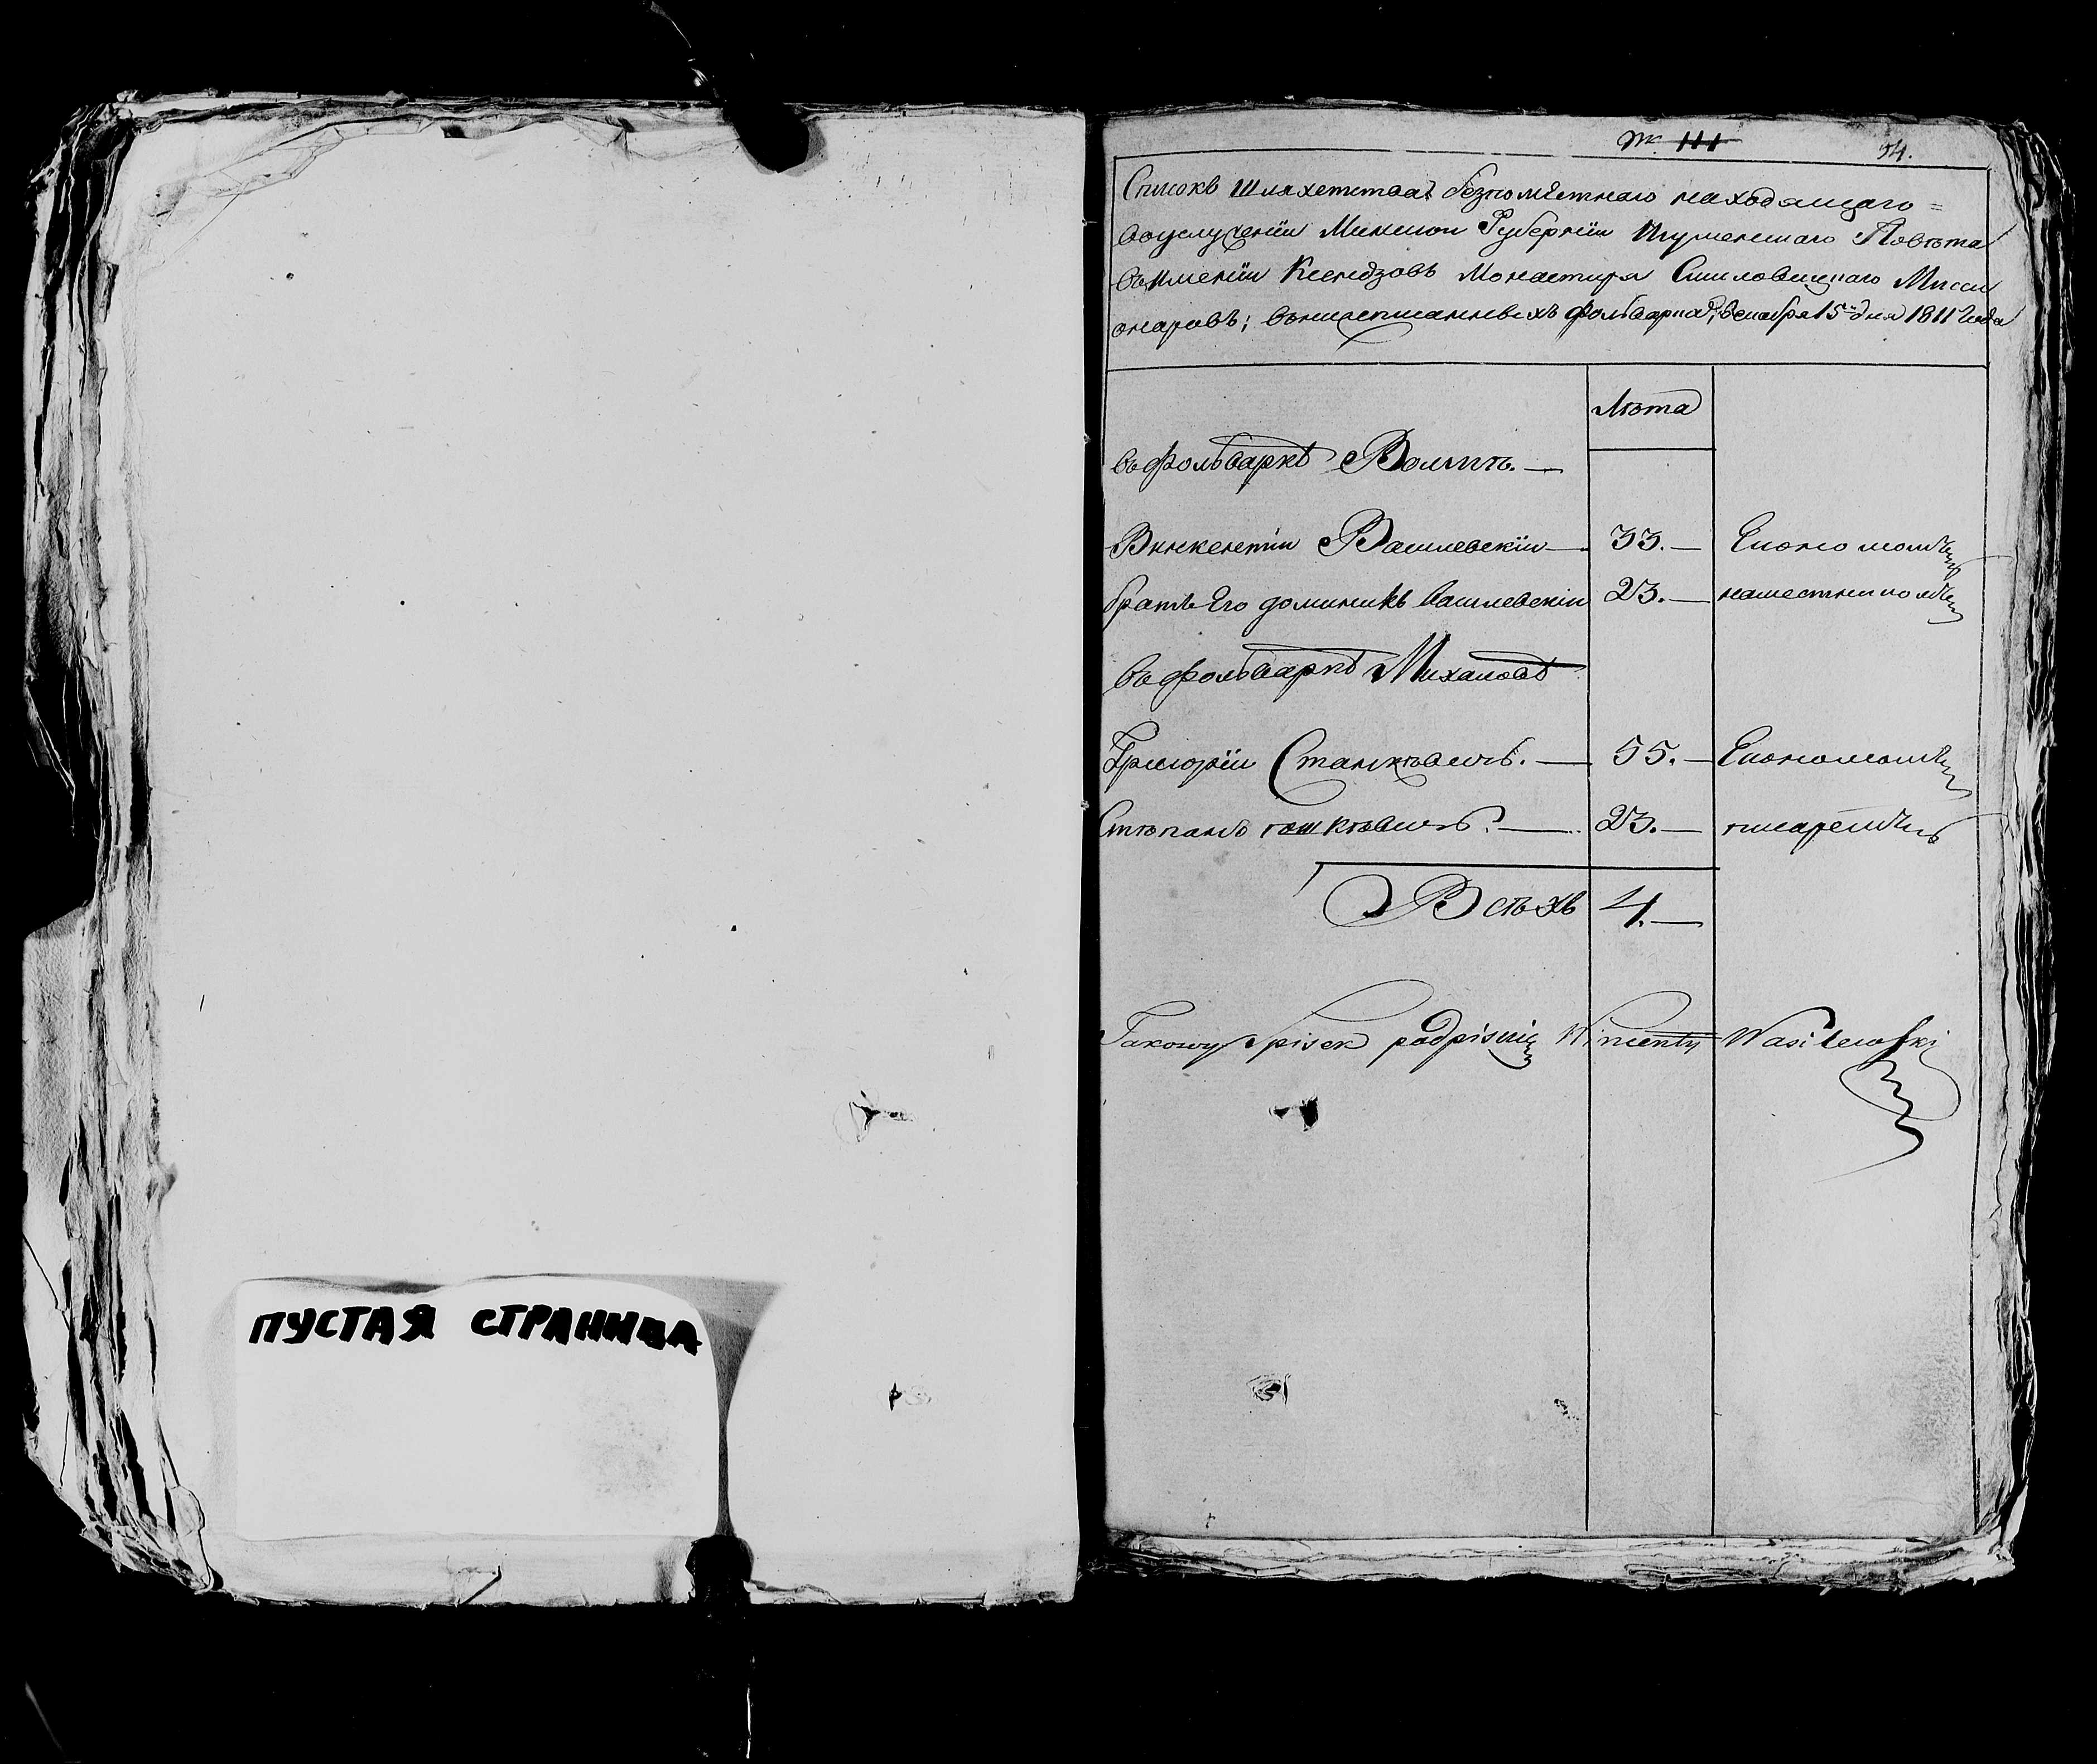 ПУСТАЯ СТРАНИЦА
№ 111
54.
Списокъ Шляхетства безпомѣстнаго находящаго=
воуслуженіи Минской Губерніи Игуменшаго Повѣта
въимѣніи Ксендзовъ Монастира Смиловицкаго Мисси
онаровъ; внишеписанныхъ фольваркахъ, декабря 15 дня 1811 Года
Лѣта
въ фольваркѣ
Винкентіи Вашлевскіи — 33. — Економомъ
братъ Его доминикъ вашлевскіи 23. — наместникомъ
въ фольваркѣ Михаловѣ
Григоріи Станкѣвичъ. — 55. — Економомъ
Стѣпанъ — 23. — писаремъ
Всѣхъ 4. —
Takowy Spisek podpisuię Wincenty Wasilewski